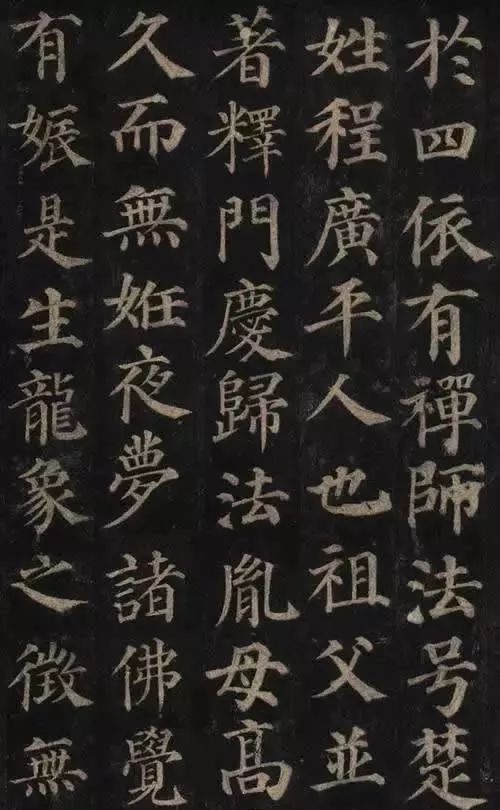 於四依有禪師法号楚
姓程廣平人也祖父並
著釋門慶歸法胤母髙
久而無姙夜夢諸佛覺
有娠是生龍象之徵無